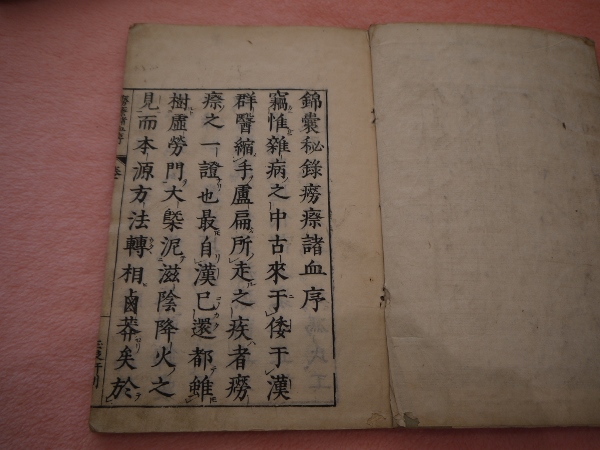 錦囊秘錄癆瘵諸血序
竊惟雜病之中古來于倭于漢
群醫縮手盧扁所走之疾者癆
瘵之一證也最自漢已還都雖
樹虛勞門大槩泥滋陰降火之
見而本源方法轉相鹵莽矣於